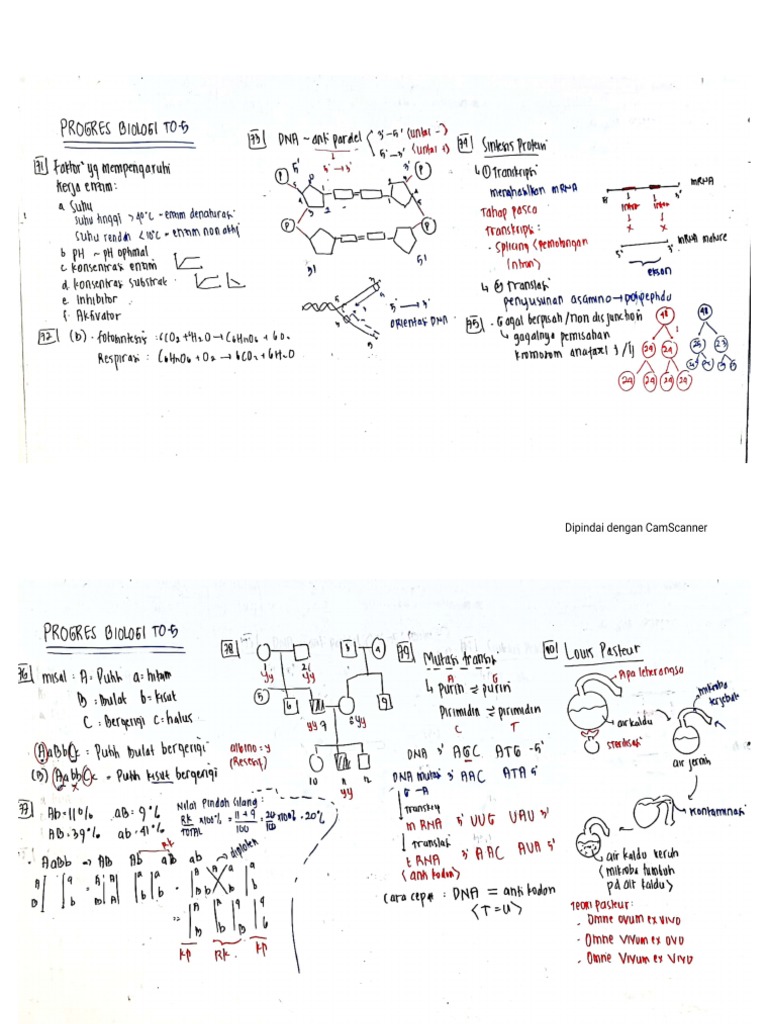 PROGRES BIOLOGI TO-5
71 Faktor yg mempengaruhi
kerja enzim:
a. Suhu
suhu tinggi > 40°C - enzim denaturasi
suhu rendah < 10°C - enzim non aktif
b. PH ~ pH optimal
c. Konsentrasi enzim
d. Konsentrasi substrat
e. Inhibitor
f. Aktivator
72 (D) · fotosintesis : 6CO2 + H2O → C6H12O6 + 6O2
Respirasi : C6H12O6 + O2 → 6CO2 + 6H2O
73 DNA ~ anti paralel
3'-5' (untai -)
5'-3' (untai +)
5' → 3'
P
P
P
P
5'
3'
3'
5'
5' → 3'
orientasi DNA
74 Sintesis Protein
① Transkripsi
menghasilkan mRNA
Tahap pasca
transkripsi:
- Splicing (pemotongan
intron)
mRNA
intron
intron
x
x
mRNA mature
5'
3'
ekson
② Translasi
penyusunan as.amino → polipeptida
75 · Gagal berpisah/non disjunction
gagalnya pemisahan
kromosom anafase 1/11
48
24
24
24
24
24
24
48
25
23
Dipindai dengan CamScanner
PROGRES BIOLOGI TO-5
76 misal : A = Putih a = hitam
B = Bulat b = kisut
C = Bergerigi c = halus
AaBbCc = Putih bulat bergerigi
(D) AabbCc = Putih kisut bergerigi
77 Ab = 11% aB = 9%
AB = 39% ab = 41%
Nilai Pindah Silang :
RK/TOTAL x 100% = 11+9/100 = 20/100 x 100% = 20%
RK
· AaBb → AB Ab aB ab
diploten
KP
RK
KP
78
1
yy
2
yy
3
4
5
6
yy 7
8 yy
9
10
11
yy
12
albino = y
(Resesif)
79 Mutasi transisi
A G
Purin ⇌ purin
Pirimidin ⇌ pirimidin
C T
DNA 3' AGC ATG -5'
DNA mutasi 3' AAC ATA 5'
G → A
transkrip
mRNA 5' UUG UAU 3'
translasi
tRNA 3' AAC AUA 5'
(anti kodon)
cara cepat : DNA = anti kodon
(T = U)
80 Louis Pasteur
Pipa leher angsa
air kaldu
sterilisasi
mikroba
terjebak
air jernih
kontaminasi
air kaldu keruh
(mikroba tumbuh
pd air kaldu)
Teori Pasteur:
- Omne ovum ex vivo
- Omne vivum ex ovo
- Omne vivum ex vivo